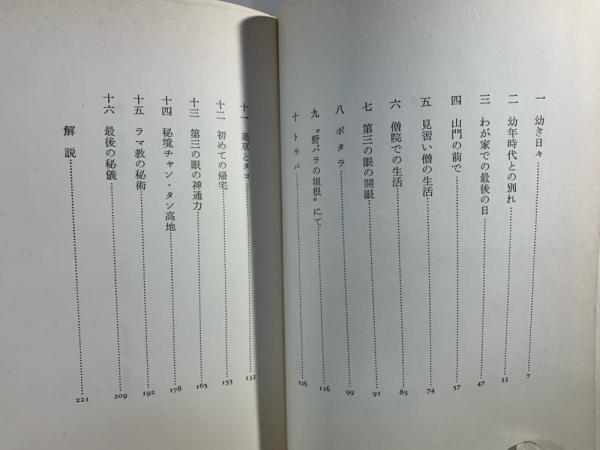 一 幼き日々 7
二 幼年時代との別れ 33
三 わが家での最後の日 47
四 山門の前で 57
五 見習い僧の生活 74
六 僧院での生活 85
七 第三の眼の開眼 91
八 ポタラ 99
九 〝野バラの垣根〟にて 116
十 トラパ 126
十一 薬草とタコ 133
十二 初めての帰宅 155
十三 第三の眼の神通力 165
十四 秘境チャン・タン高地 178
十五 ラマ教の秘術 192
十六 最後の秘儀 209
解説 221